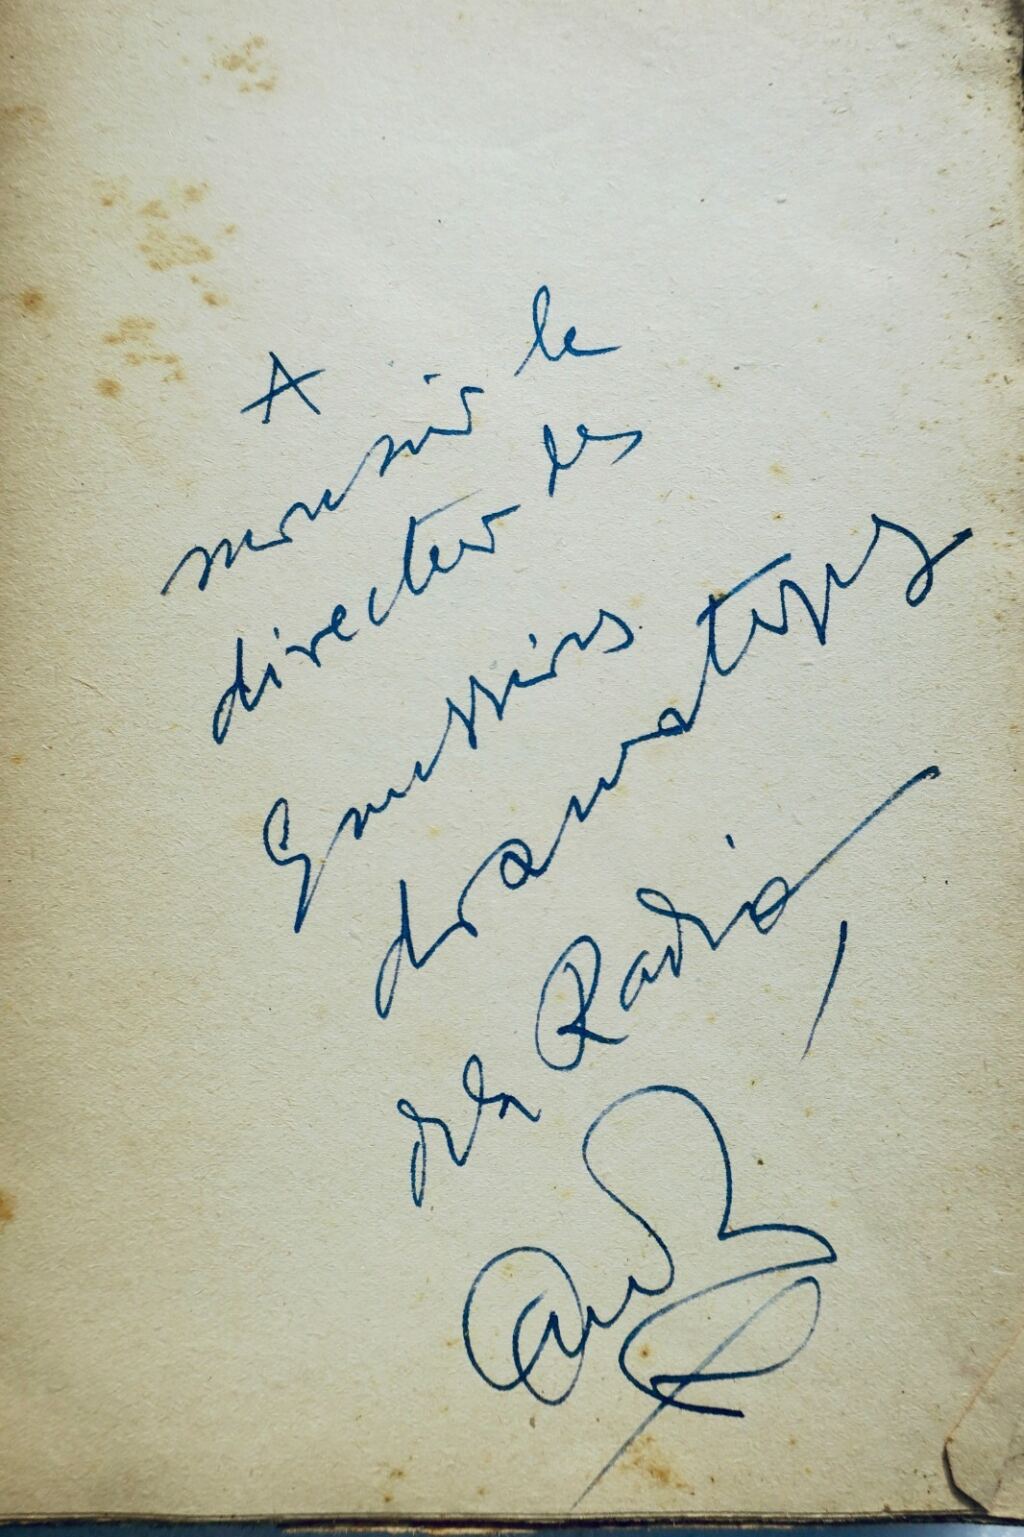 A
monsieur le
directeur des
Emissions
dramatiques
de la Radio,